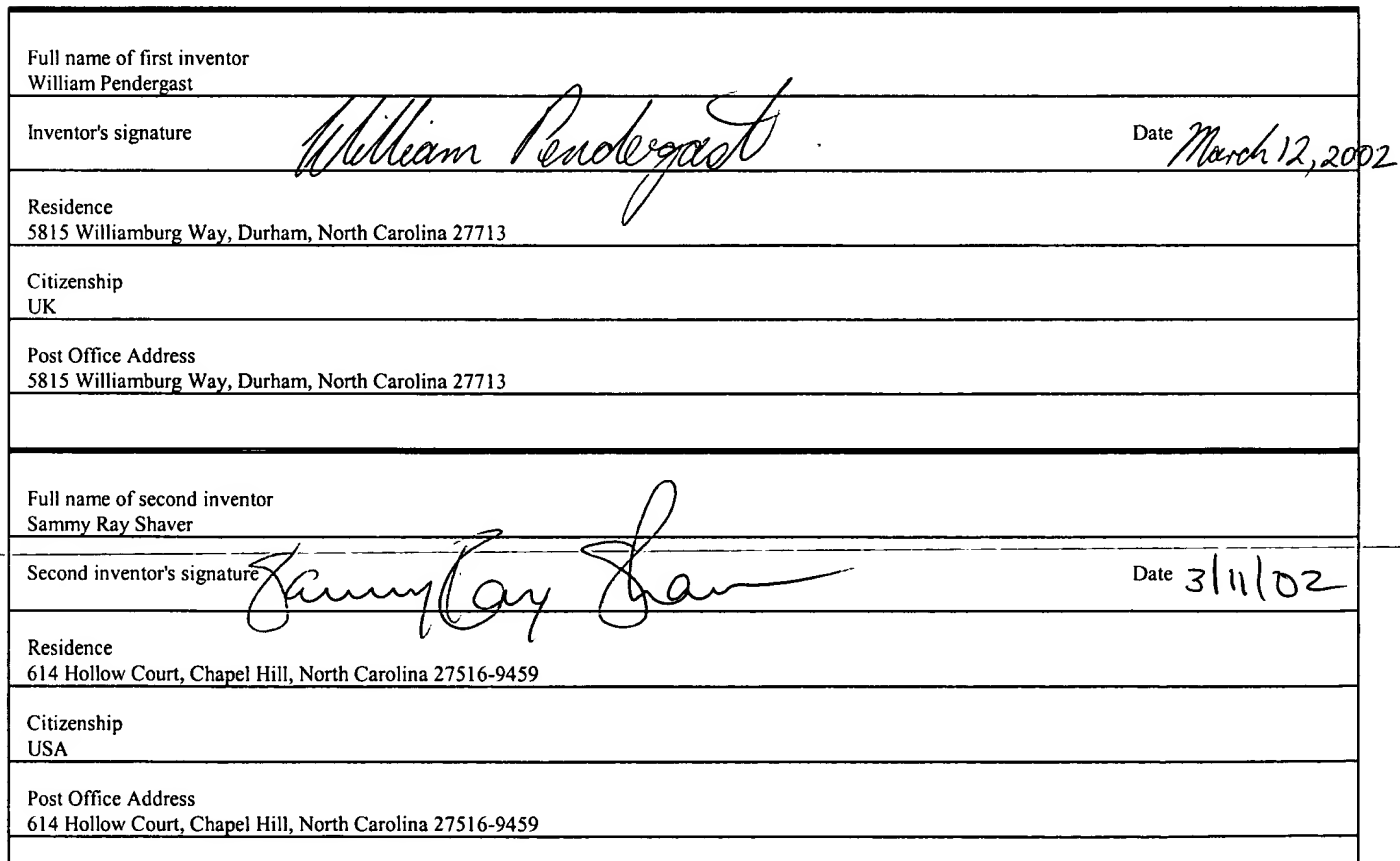 Full name of first inventor
William Pendergast
Inventor's signature William Pendergast Date March 12, 2002
Residence
5815 Williamburg Way, Durham, North Carolina 27713
Citizenship
UK
Post Office Address
5815 Williamburg Way, Durham, North Carolina 27713
Full name of second inventor
Sammy Ray Shaver
Second inventor's signature Sammy Ray Shaver Date 3/11/02
Residence
614 Hollow Court, Chapel Hill, North Carolina 27516-9459
Citizenship
USA
Post Office Address
614 Hollow Court, Chapel Hill, North Carolina 27516-9459